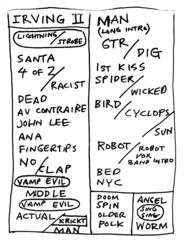 IRVING II
LIGHTNING/STROBE
SANTA
4 OF 2/RACIST
DEAD
AU CONTRAIRE
JOHN LEE
ANA
FINGERTIPS
NO/CLAP
VAMP EVIL
MIDDLE
VAMP EVIL
ACTUAL/KRICKT
MAN
MAN
(LONG INTRO)
GTR/DIG
1ST KISS
SPIDER/WICKED
BIRD/CYCLOPS
/SUN
ROBOT/ROBOT
VOX
BAND INTRO
BED
NYC
DOOM
SPIN
OLDER
POLK
ANGEL
SING
SING
WORM